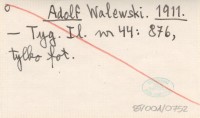 Adolf Walewski. 1911.
— Tyg. Il. nr 44: 876,
tylko fot.